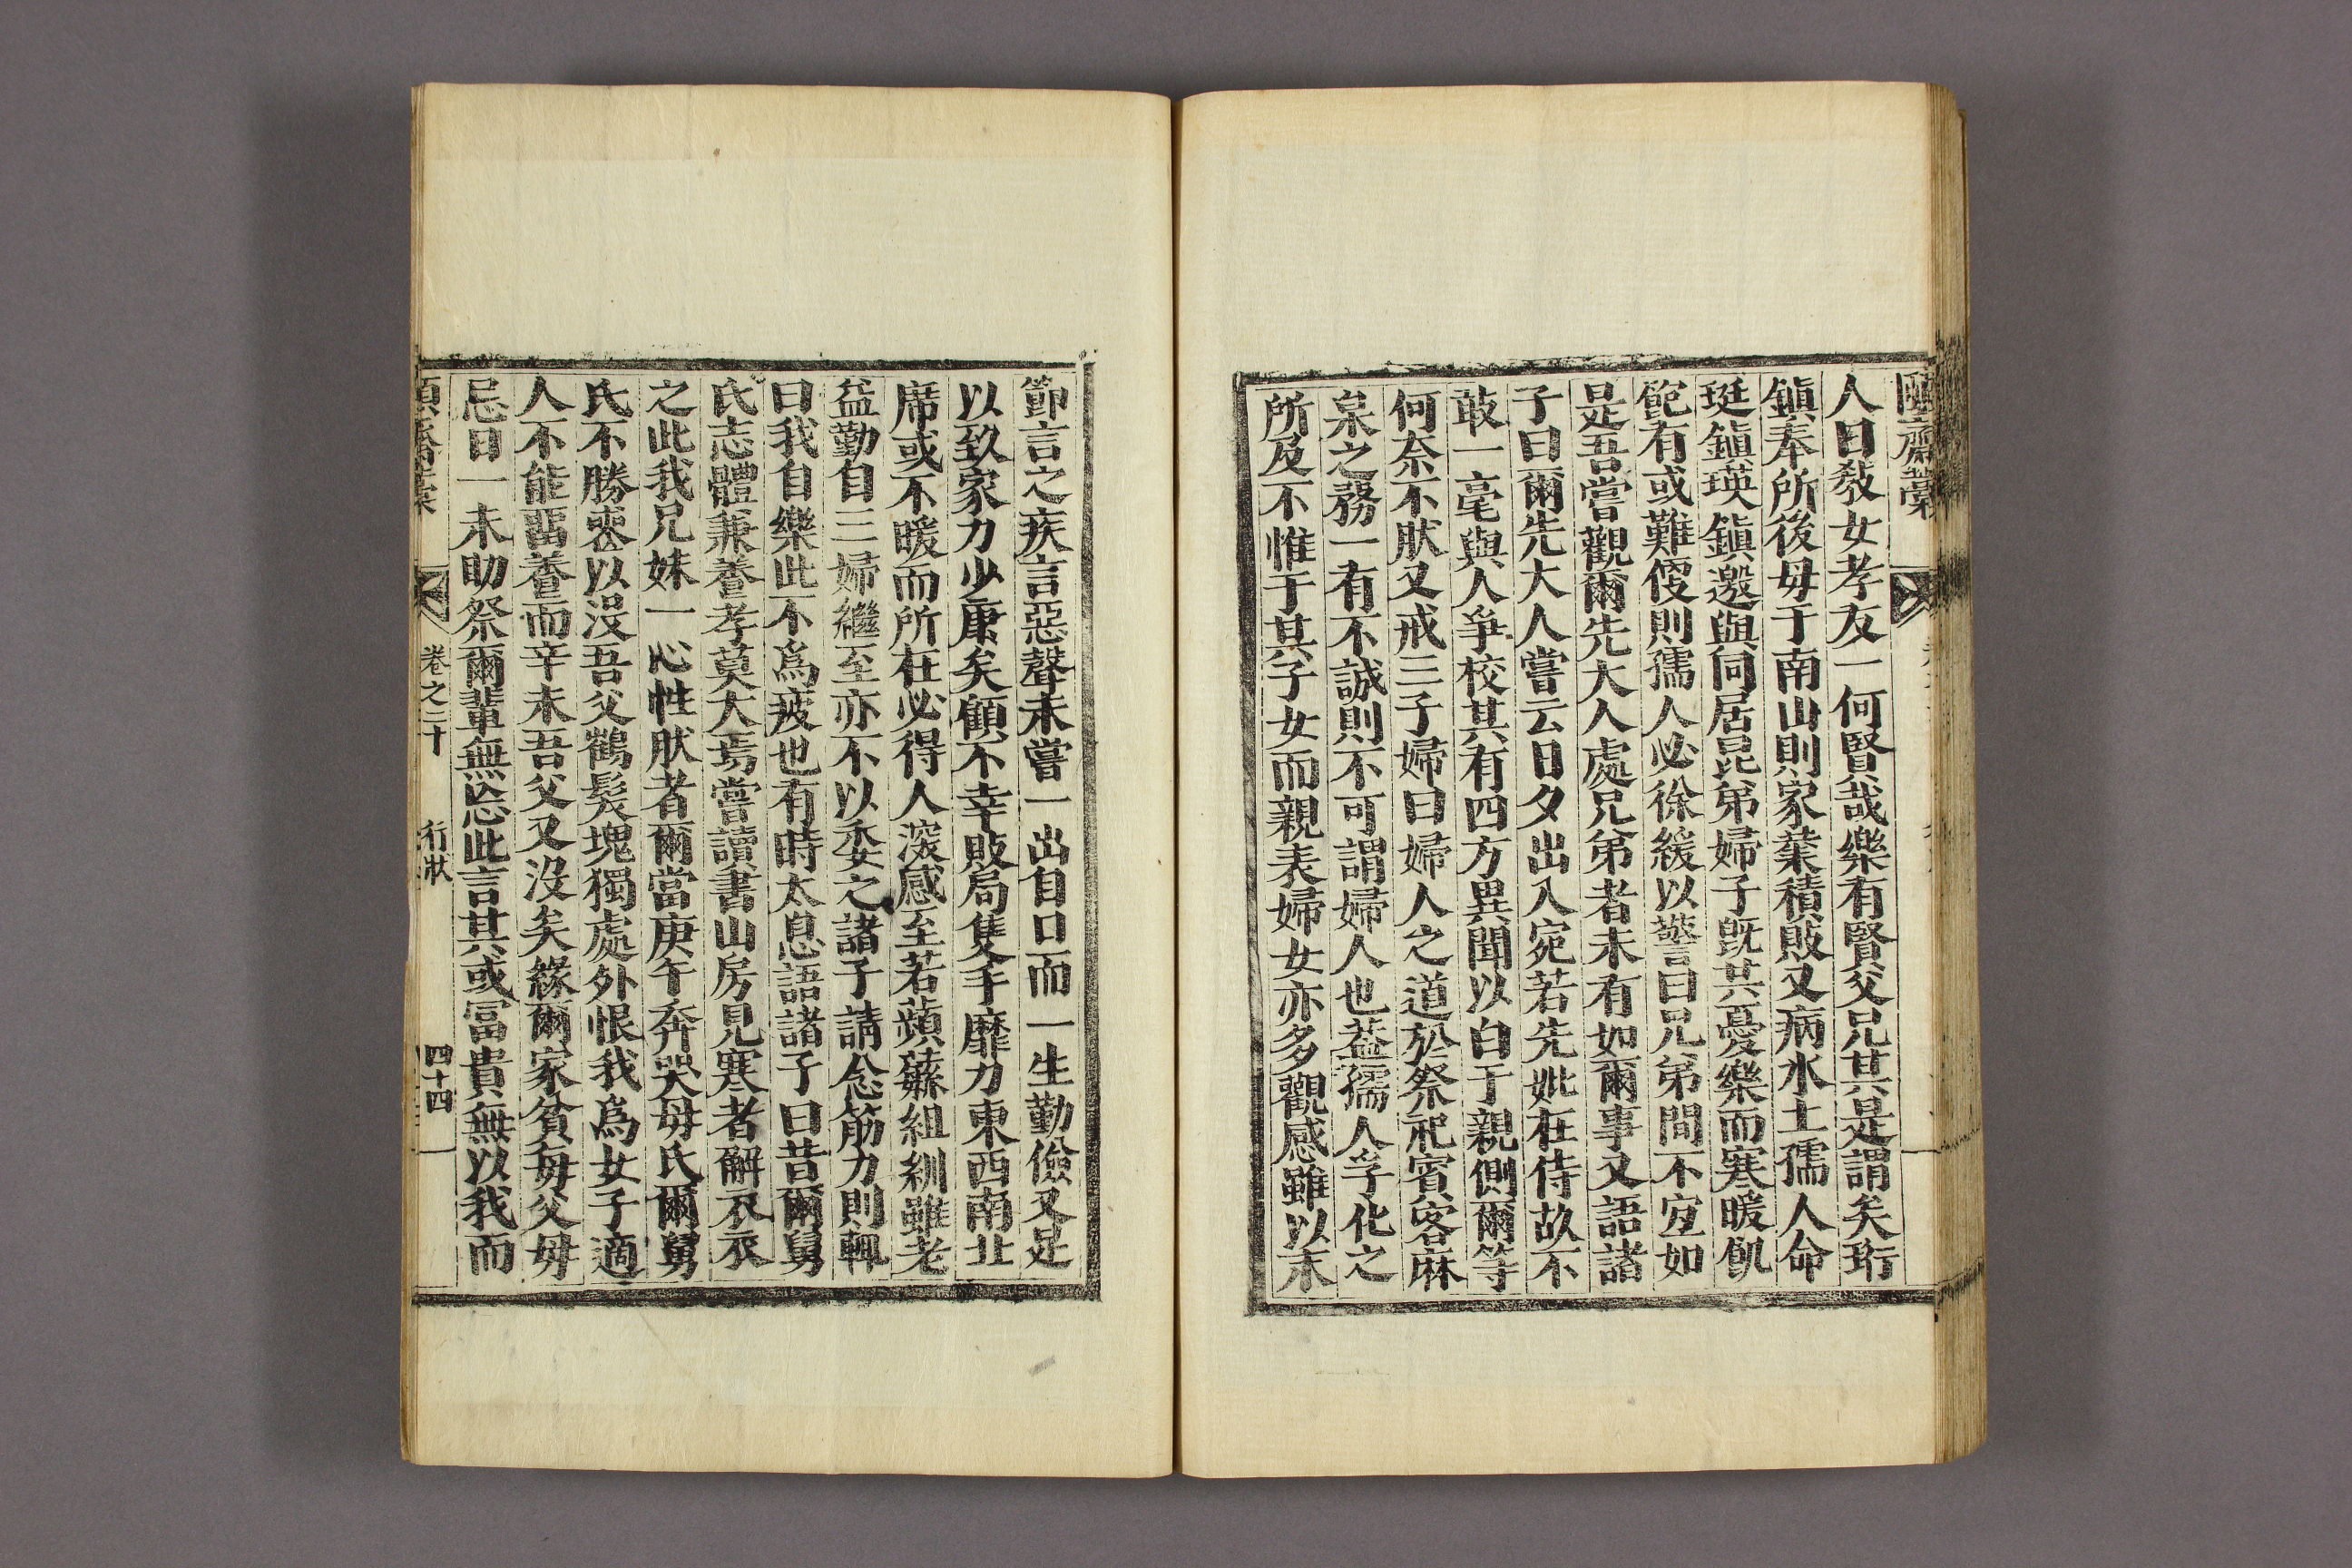 齋藁
人曰敎女孝友一何賢哉樂有賢父兄其是謂矣珩
鎭奉所後母于南山則家業積敗又病水土孺人命
珽鎭瑛鎭邀與同居昆弟婦子旣共憂樂而寒暖飢
飽有或難便則孺人必徐緩以警曰兄弟間不宜如
是吾嘗觀爾先大人處兄弟者未有如爾事又語諸
子曰爾先大人嘗云日夕出入宛若先妣在侍故不
敢一毫與人爭校其有四方異聞以白于親側爾等
何奈不肰又戒三子婦曰婦人之道於祭祀賓客麻
枲之務一有不誠則不可謂婦人也蓋孺人孚化之
所及不惟于其子女而親表婦女亦多觀感雖以末
節言之疾言惡聲未嘗一出自口而一生勤儉又足
以致家力少康矣顧不幸敗局隻手靡力東西南北
席或不暖而所在必得人深感至若蘋蘩組紃雖老
益勤自三婦繼至亦不以委之諸子請念筋力則輒
曰我自樂此不爲疲也有時太息語諸子曰昔爾舅
氏志體兼養孝莫大焉嘗讀書山房見寒者解衣衣
之此我兄妹一心性肰者爾當庚午奔哭母氏爾舅
氏不勝喪以沒吾父鶴髮塊獨處外恨我爲女子適
人不能留養而辛未吾父又沒矣緣爾家貧每父母
忌日一未助祭爾輩無忘此言其或富貴無以我而
齋藁 卷之二十 行狀 四十四